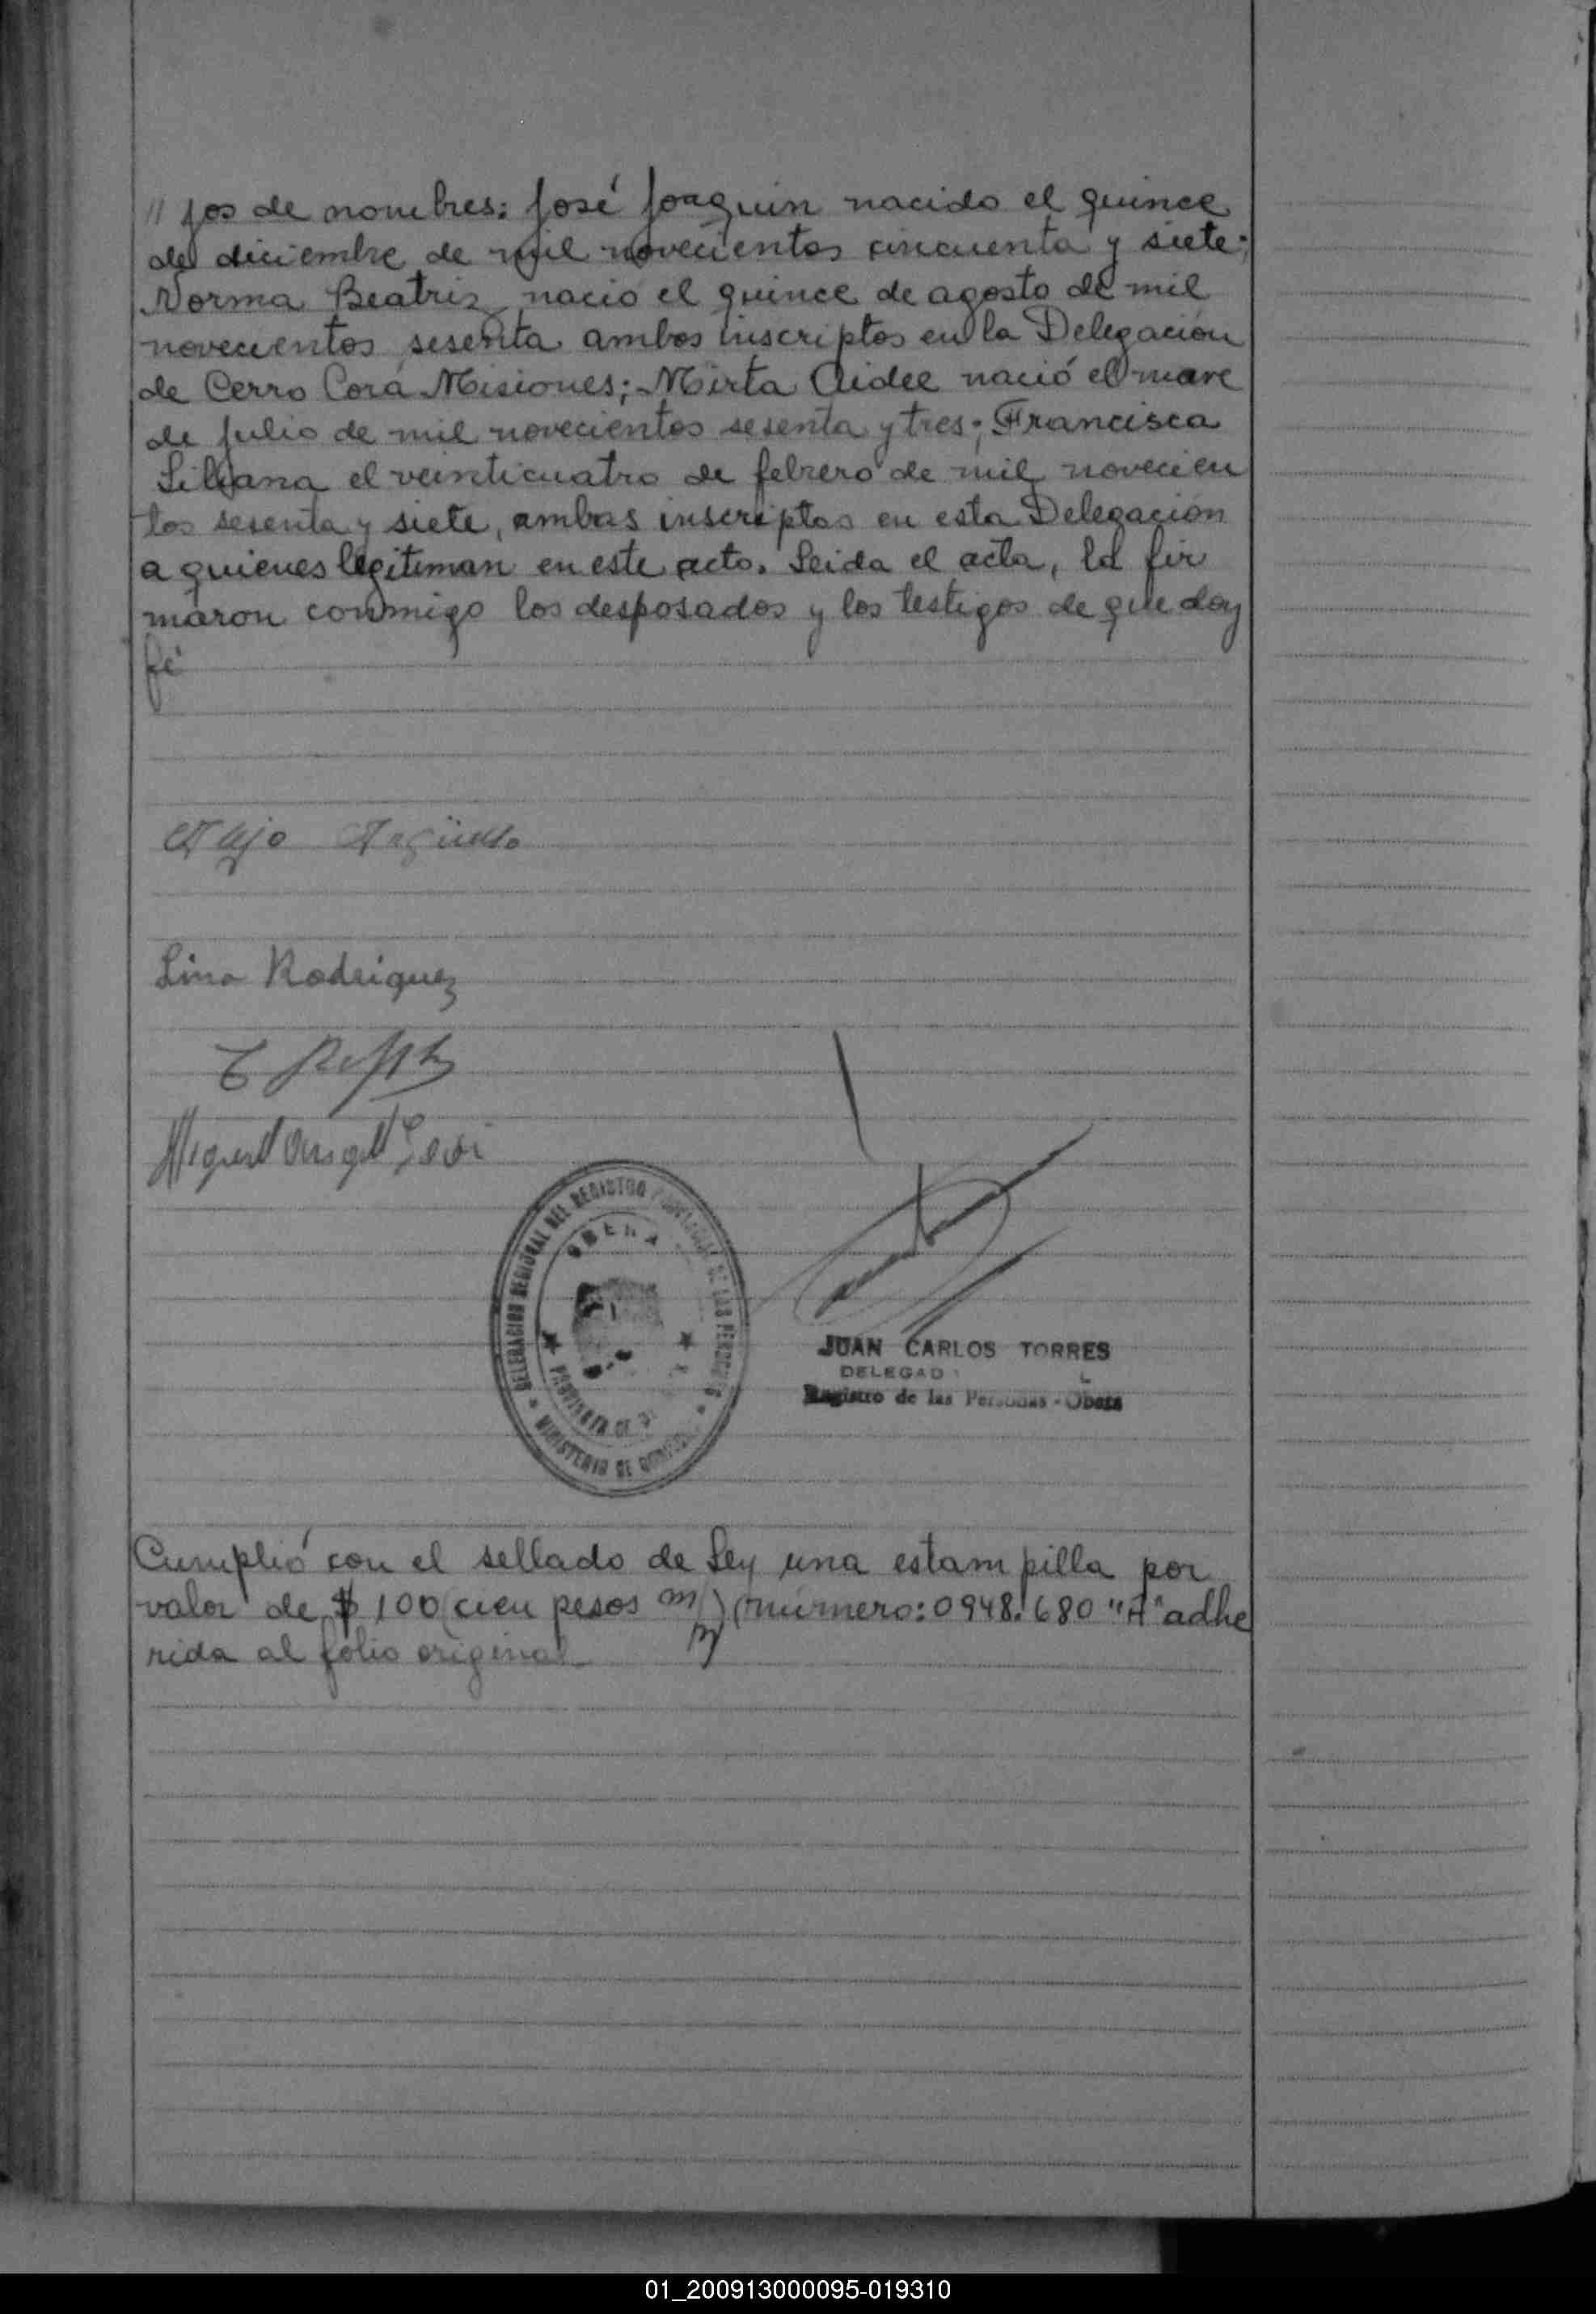 // jos de nombres: José Joaquin nacido el quince
de diciembre de mil novecientos cincuenta y siete;
Norma Beatriz nació el quince de agosto de mil
novecientos sesenta ambos inscriptos en la Delegación
de Cerro Corá Misiones; Mirta Aidee nació el nueve
de Julio de mil novecientos sesenta y tres; Francisca
Liliana el veinticuatro de febrero de mil novecien
tos sesenta y siete, ambas inscriptas en esta Delegación
a quienes legitiman en este acto. Leida el acta, la fir
maron conmigo los desposados y los testigos de que doy
fé
Argüello
Lina Rodriguez
Miguel Angel
DELEGACION REGIONAL DEL REGISTRO PROVINCIAL DE LAS PERSONAS
OBERA
PROVINCIA DE
MINISTERIO DE
JUAN CARLOS TORRES
DELEGAD
Registro de las Personas - Oberá
Cumplió con el sellado de Ley una estampilla por
valor de $ 100 (cien pesos m/n) (número: 0948.680 "A" adhe
rida al folio original
01_200913000095-019310